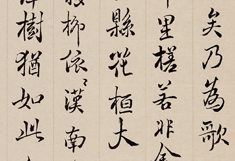 矣乃為歌
里槎若非金
縣花桓大
柳依々漢南
樹猶如此人